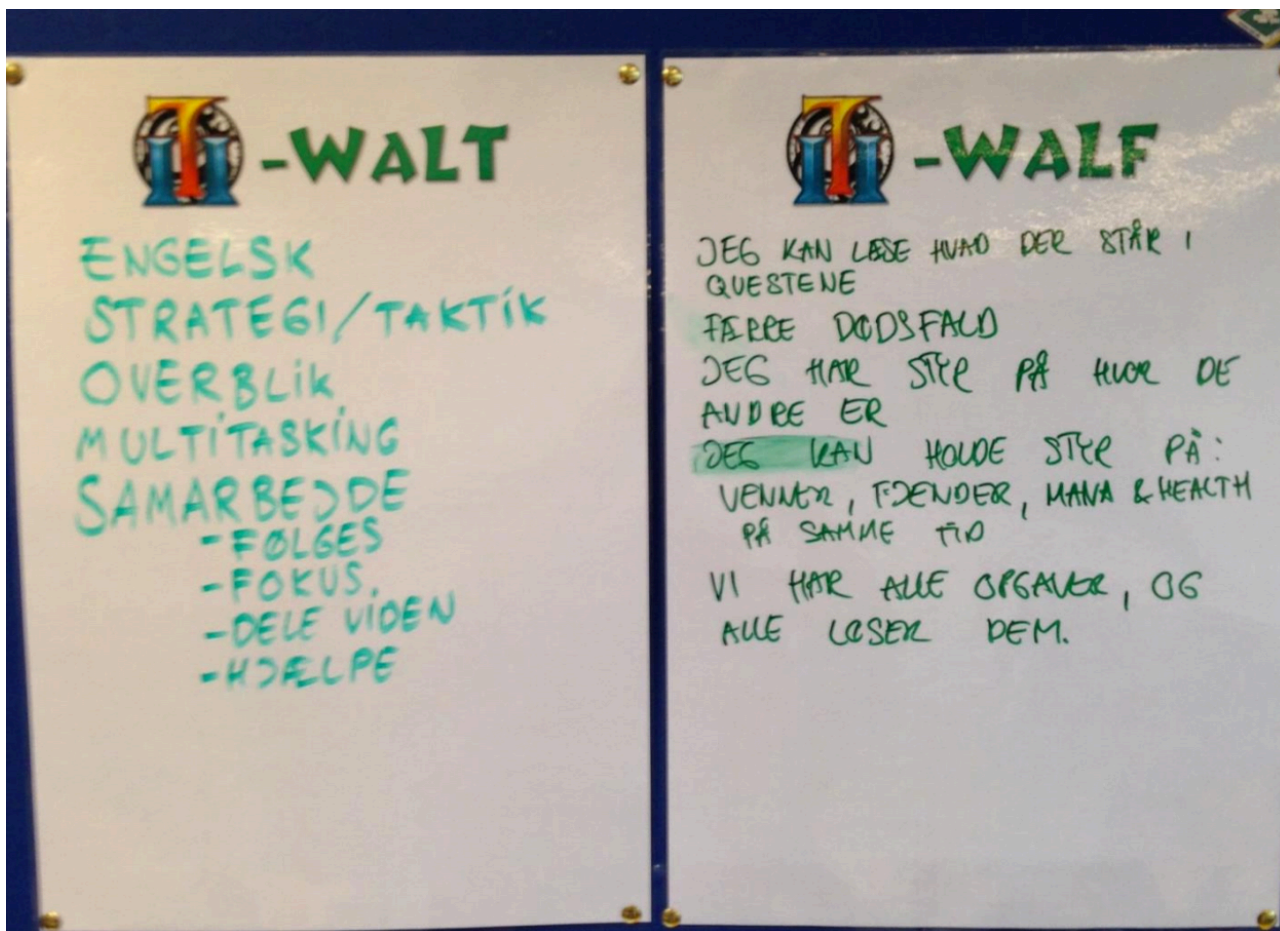 -WALT
ENGELSK
STRATEGI/TAKTIK
OVERBLIK
MULTITASKING
SAMARBEJDE
-FØLGES
-FOKUS.
-DELE VIDEN
-HJÆLPE
-WALF
JEG KAN LÆSE HVAD DER STÅR I
QUESTENE
FÆRRE DØDSFALD
JEG HAR STYR PÅ HVOR DE
ANDRE ER
JEG KAN HOLDE STYR PÅ:
VENNER, FJENDER, MANA & HEALTH
PÅ SAMME TID
VI HAR ALLE OPGAVER, OG
ALLE LØSER DEM.